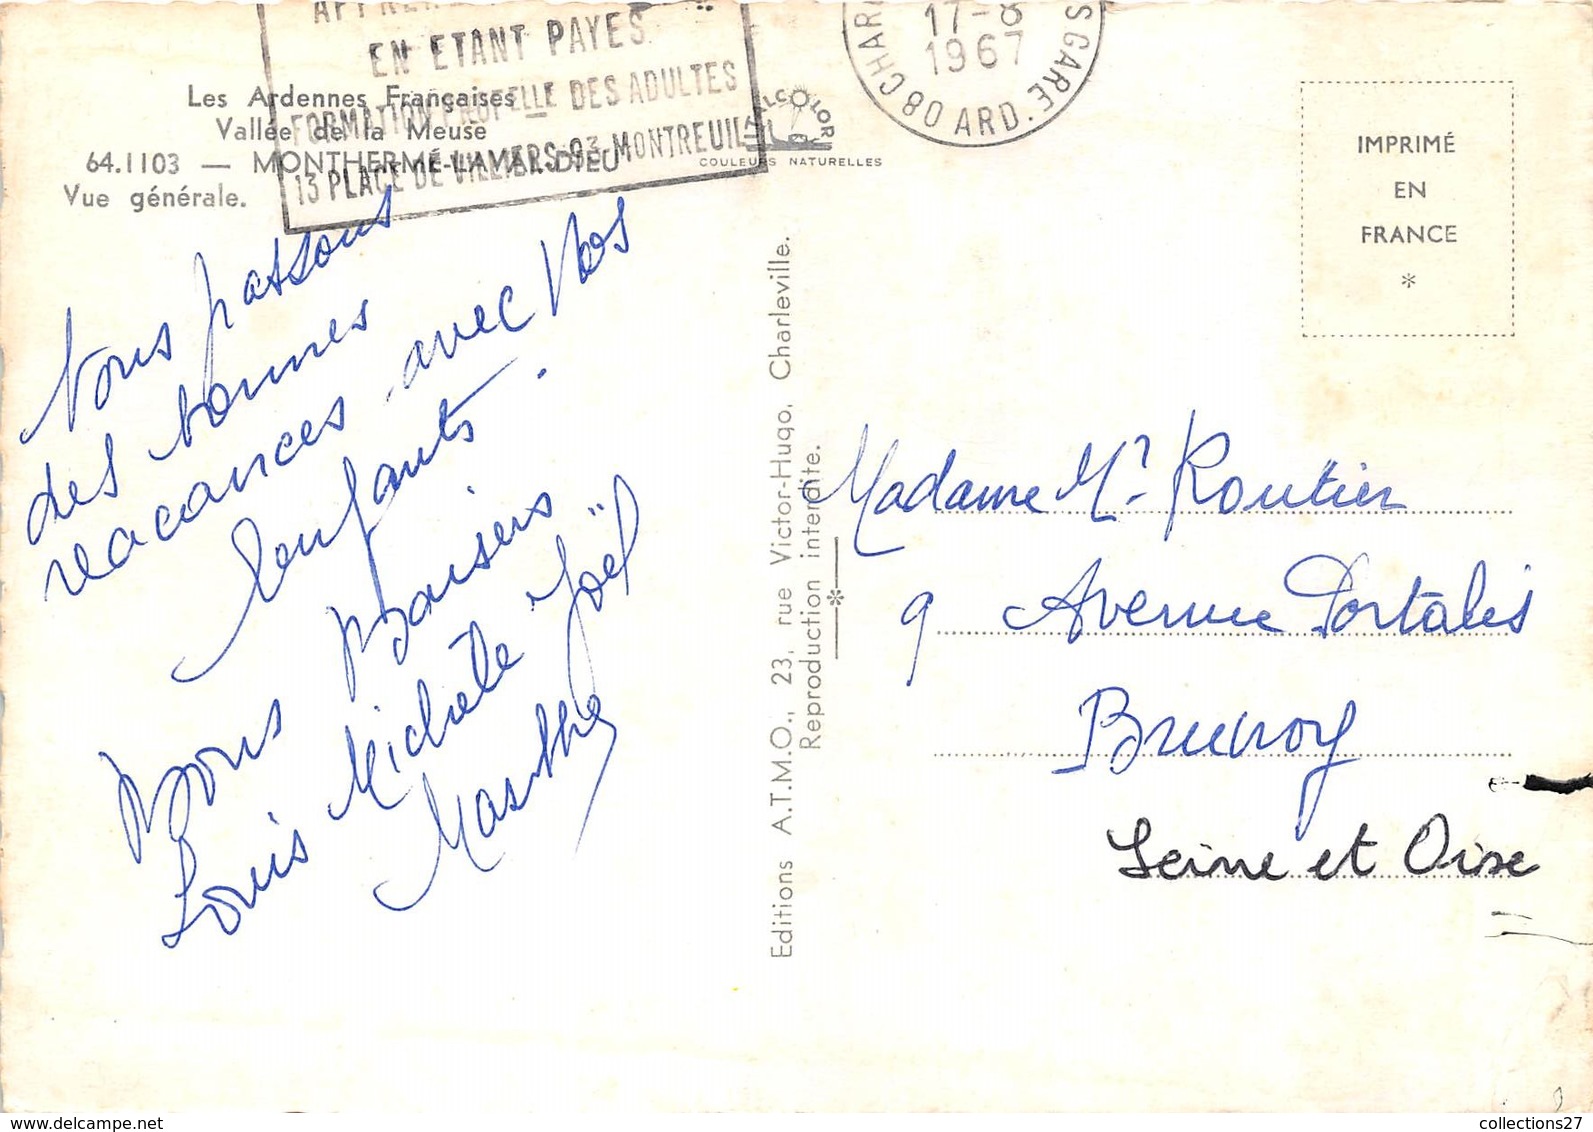 EN ETANT PAYES
FORMATION PROF ELLE DES ADULTES
13 PLACE DE VILLIERS 93 MONTREUIL
17-8
1967
08 CHAR
S GARE ARD.
Les Ardennes Françaises
Vallée de la Meuse
64.1103 — MONTHERMÉ-LAVAL-DIEU
Vue générale.
ITALCOLOR
COULEURS NATURELLES
IMPRIMÉ
EN
FRANCE
*
Nous passons
des bonnes
vacances avec Nos
enfants.
Bons Baisers
Louis Michèle Joël
Marthe
Editions A.T.M.O., 23, rue Victor-Hugo, Charleville.
Reproduction interdite.
Madame Mr Routier
9 Avenue Portalis
Brunoy
Seine et Oise
collections27